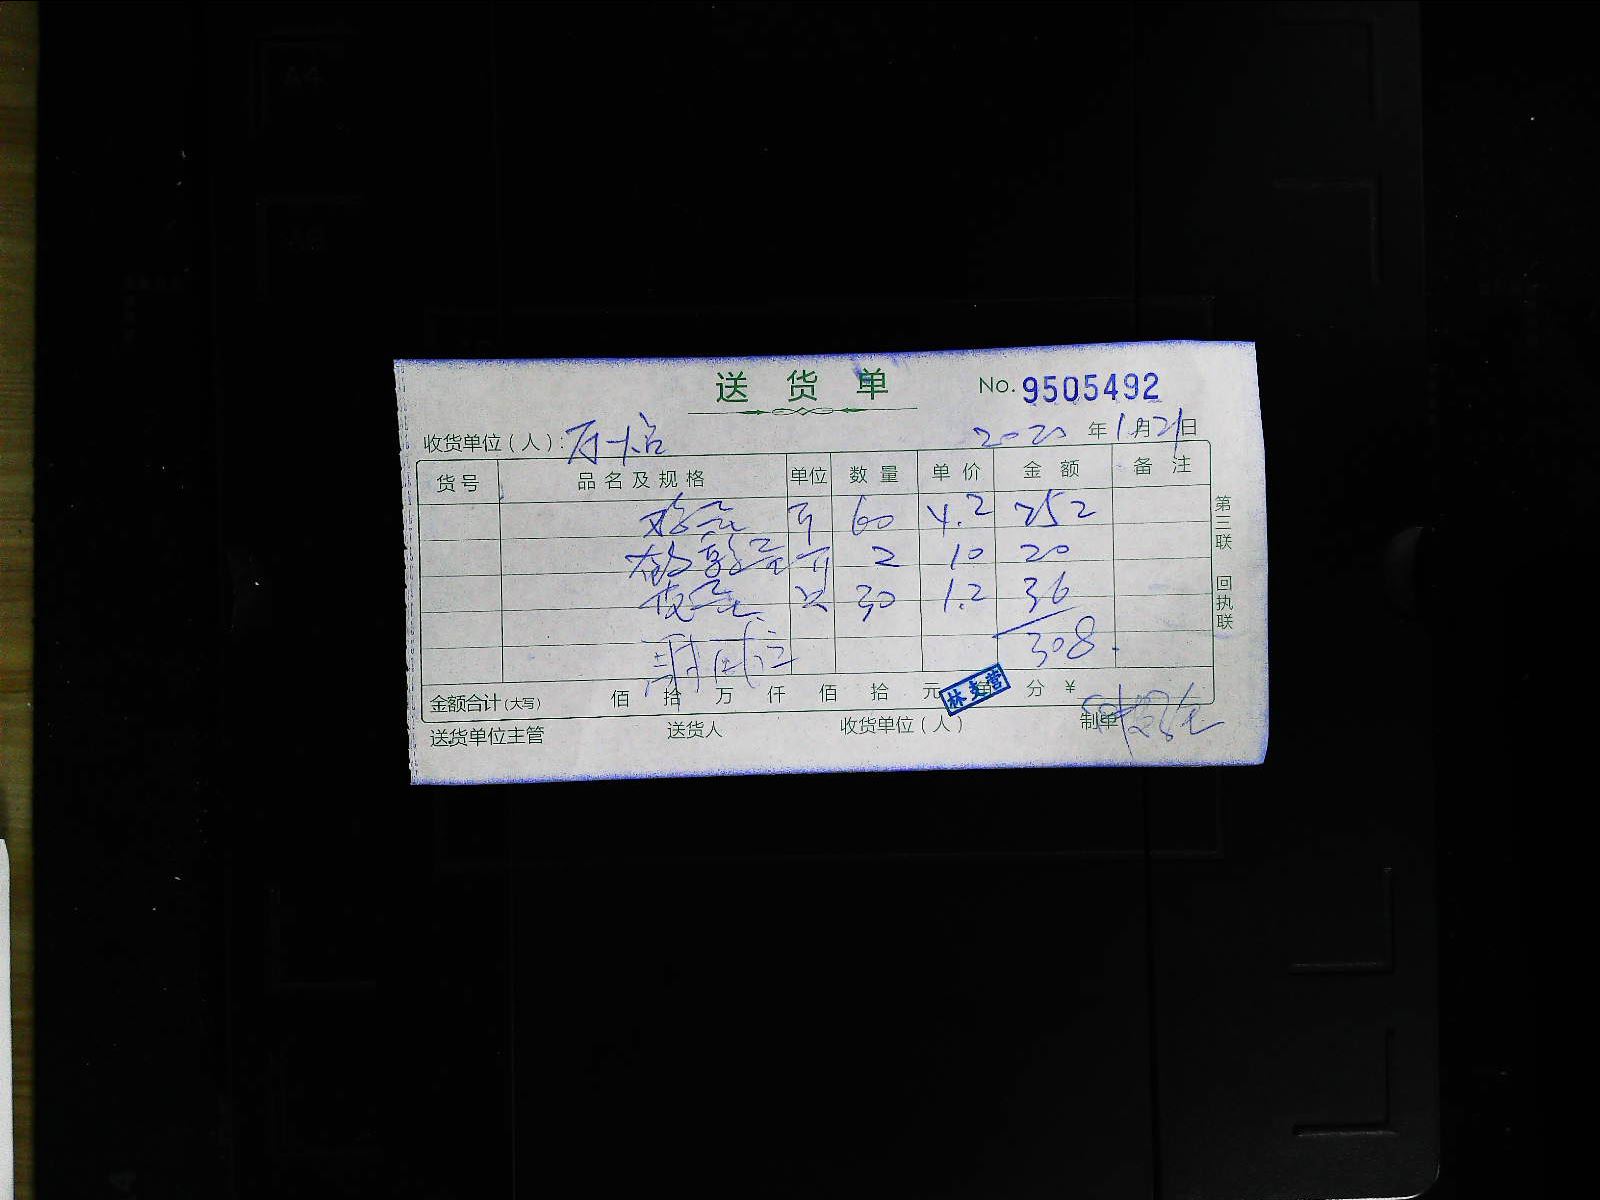 送货单 No. 9505492
收货单位（人）： 2020 年 1 月 21 日
货号 品名及规格 单位 数量 单价 金额 备注
鸡蛋 斤 60 4.2 252
斤 2 10 20
皮蛋 只 30 1.2 36
308.
金额合计(大写) 佰 拾 万 仟 佰 拾 元 角 分 ¥
林支营
送货单位主管 送货人 收货单位（人） 制单
第三联 回执联